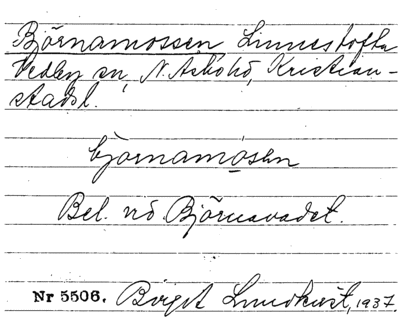 Björnamossen, Linnestofta
Vedby sn, N. Åsbohd, Kristian-
stadsl.
bjɷrnamosən
Bel. nö Björnavadet.
Nr 5506. Birgit Lundkvist, 1937.